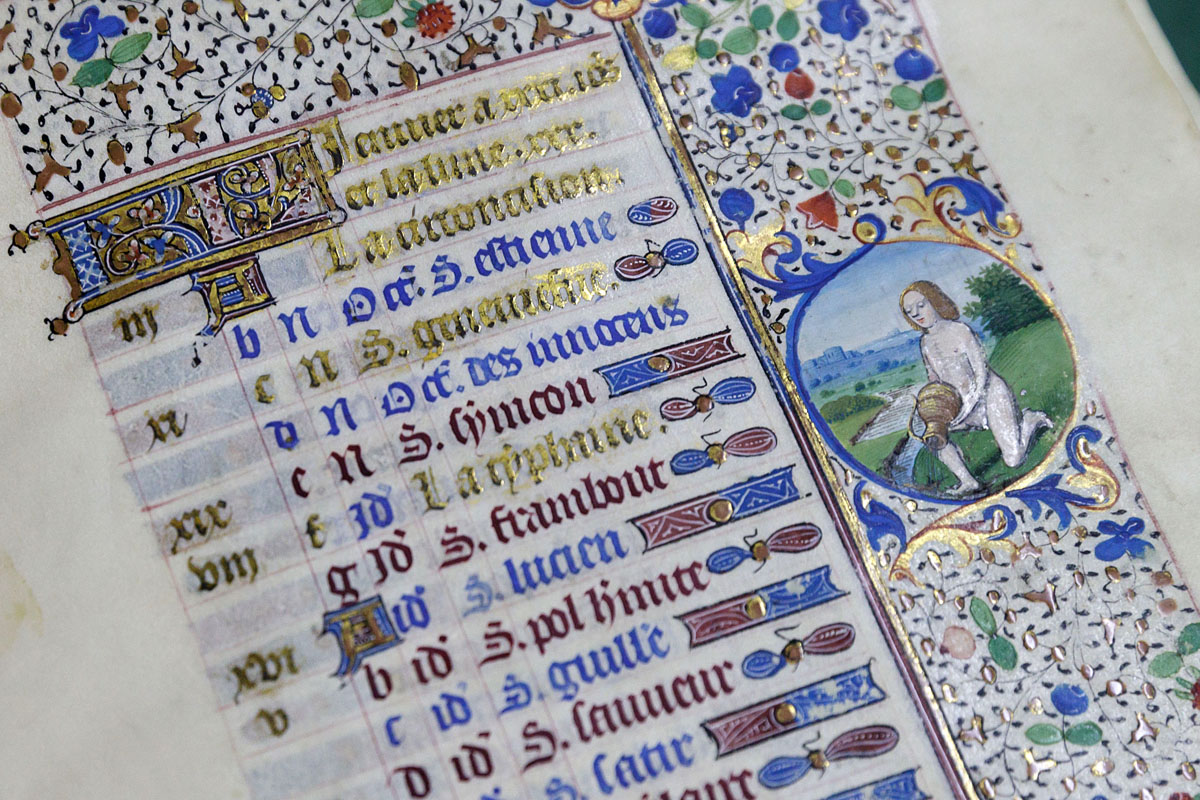 KL Januier a xxxi. iours
et la lune. xxx.
iii A La circoncision.
b N Oct. S. estienne
xi c N S. geneuiefue.
d N Oct. des innocens
xix e N S. symeon
viii f Id La typhaine.
g Id S. frambout
xvi A id S. lucien
v b id S. pol hmite
c id S. guille
d id S. sauueur
S. satir